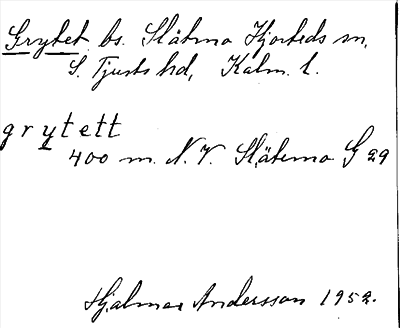 Grytet bs. Slätmo Hjorteds sn,
S. Tjusts hd, Kalm. l.
grytett
400 m. N.V. Slätemo G 29
Hjalmar Andersson 1952.